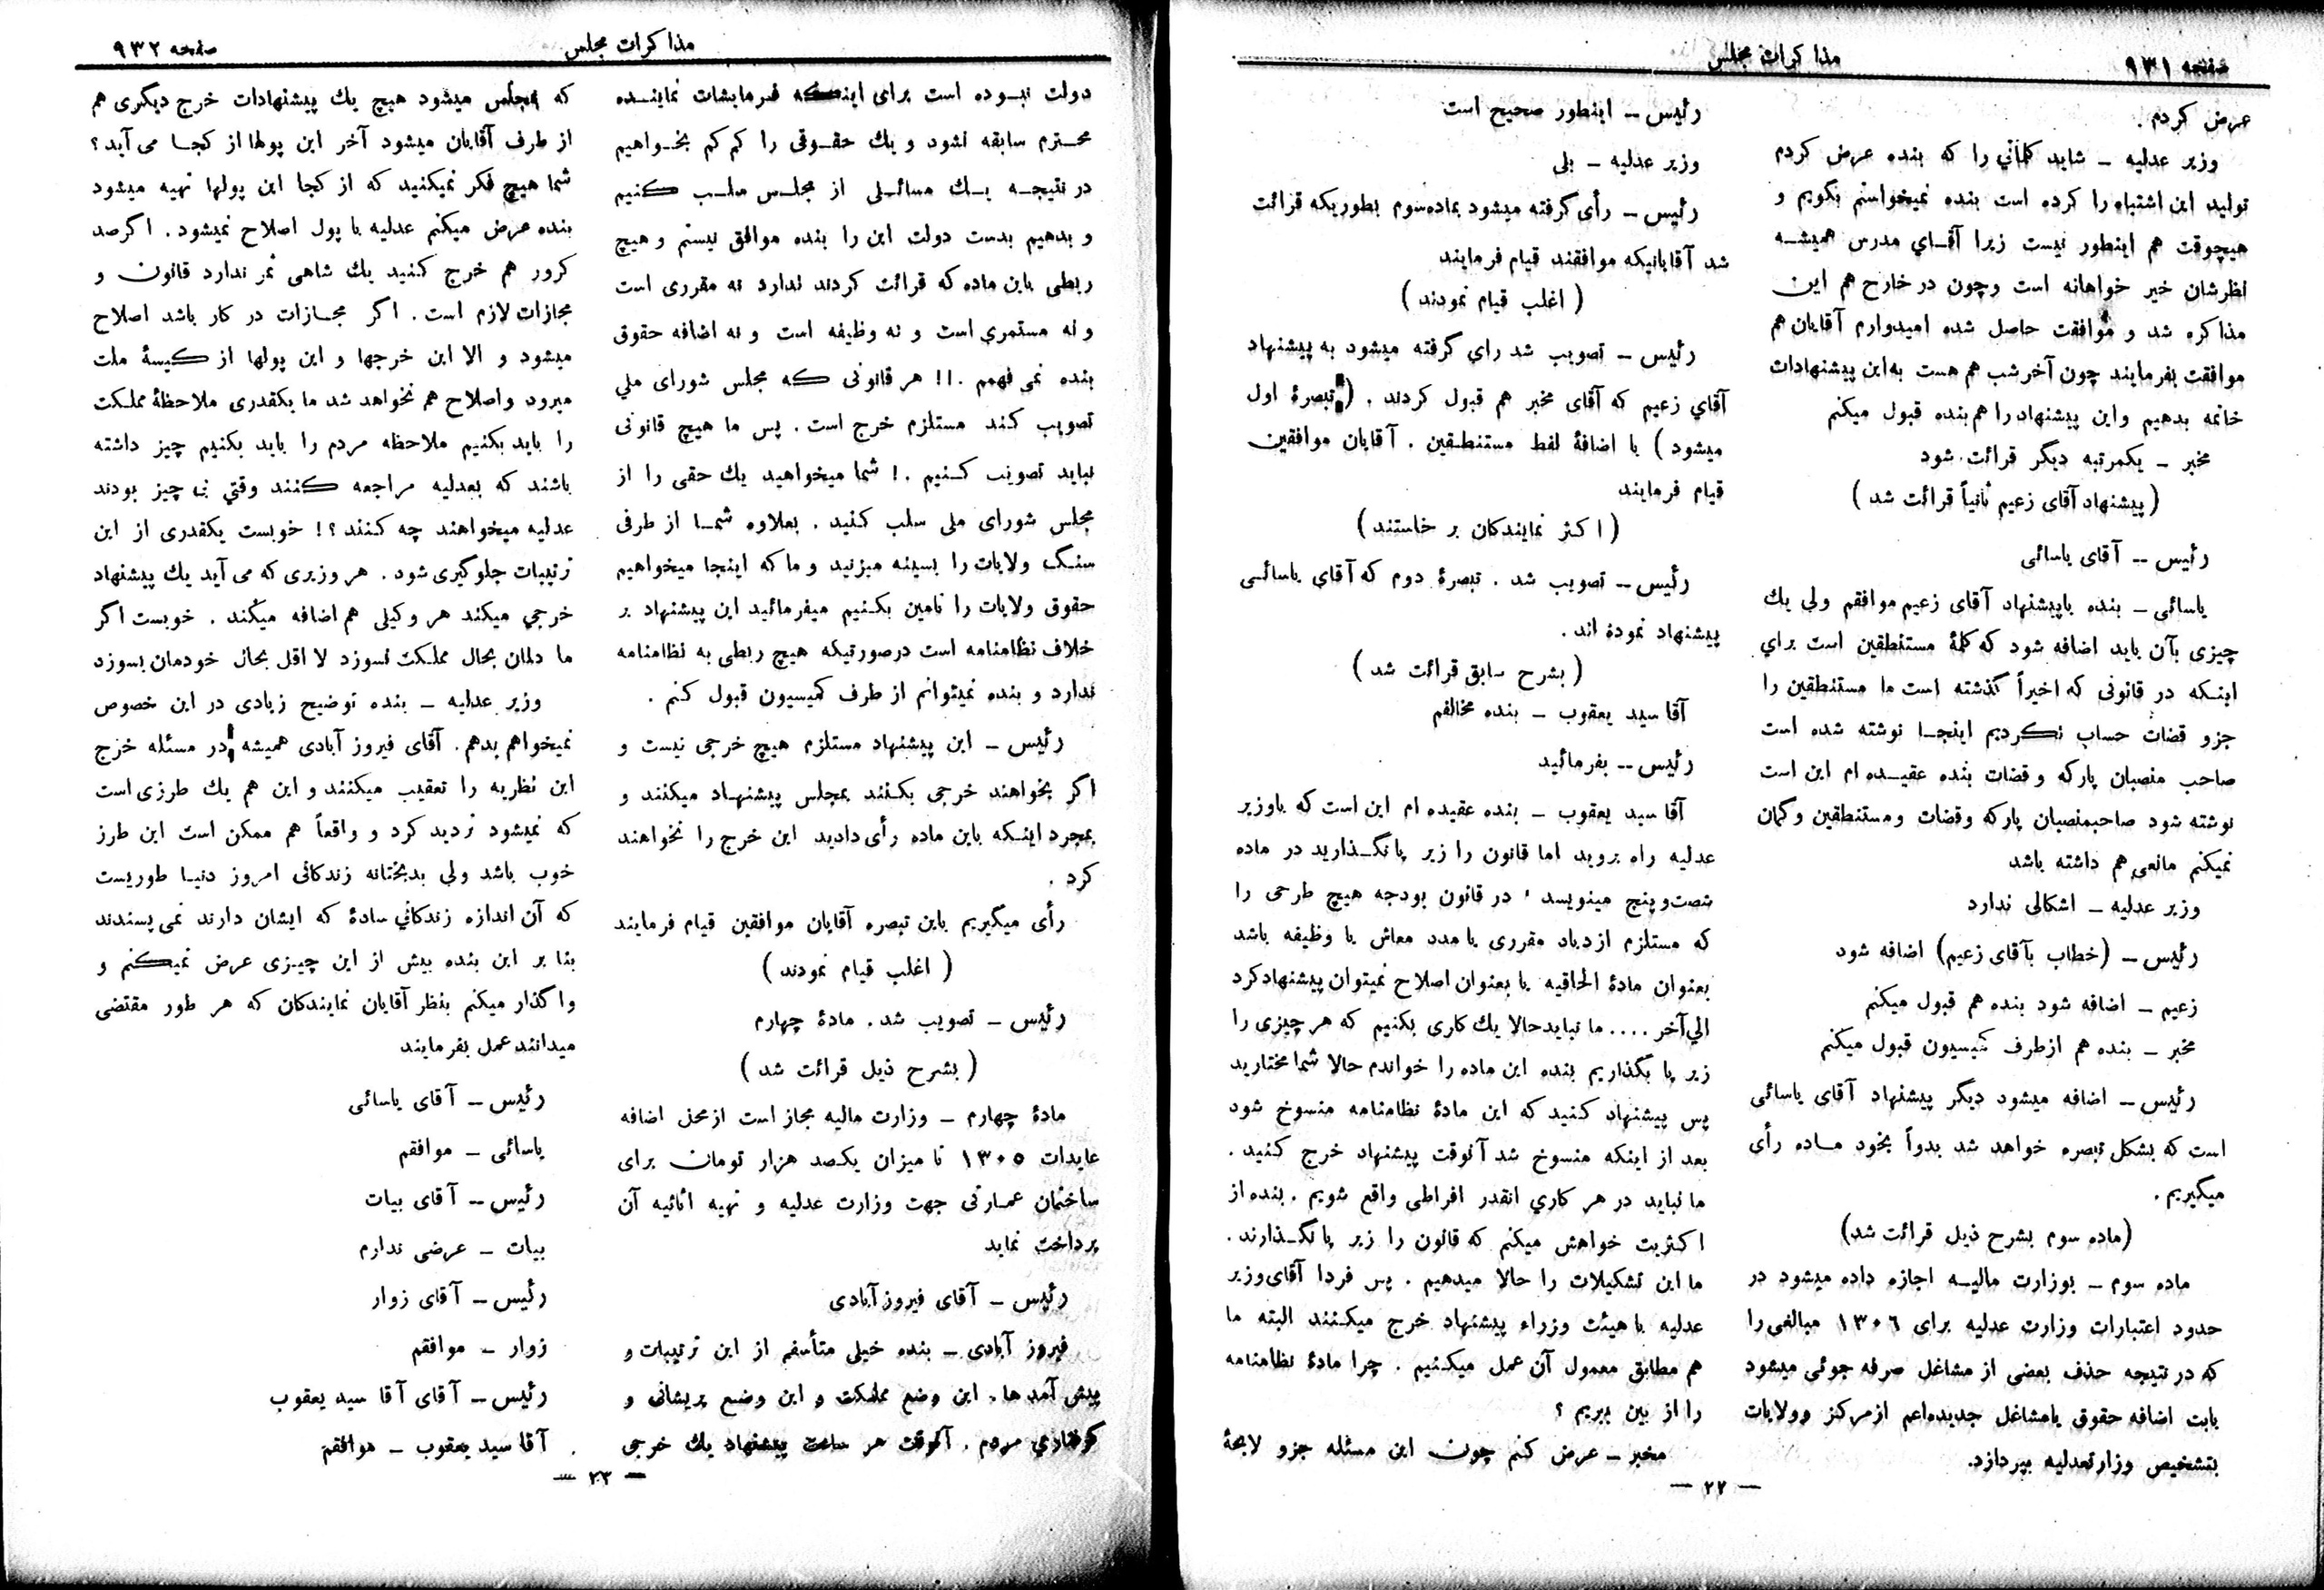 صفحه ۹۳۱
مذاکرات مجلس
عرض کردم .
وزیر عدلیه – شاید کلماتی را که بنده عرض کردم
تولید این اشتباه را کرده است بنده نمیخواستم بگویم و
هیچوقت هم اینطور نیست زیرا آقای مدرس همیشه
نظرشان خیر خواهانه است وچون در خارج هم این
مذاکره شد و موافقت حاصل شده امیدوارم آقایان هم
موافقت بفرمایند چون آخرشب هم هست به‌این پیشنهادات
خاتمه بدهیم واین پیشنهاد را هم بنده قبول میکنم
مخبر – یکمرتبه دیگر قرائت شود
(پیشنهاد آقای زعیم ثانیاً قرائت شد)
رئیس – آقای یاسائی
یاسائی – بنده باپیشنهاد آقای زعیم موافقم ولی یك
چیزی بآن باید اضافه شود که کلمۀ مستنطقین است برای
اینکه در قانونی که اخیراً گذشته است ما مستنطقین را
جزو قضات حساب نکردیم اینجا نوشته شده است
صاحب منصبان پارکه و قضات بنده عقیده ام این است
نوشته شود صاحبمنصبان پارکه وقضات ومستنطقین وگمان
نمیکنم مانعی هم داشته باشد
وزیر عدلیه – اشکالی ندارد
رئیس – (خطاب بآقای زعیم) اضافه شود
زعیم – اضافه شود بنده هم قبول میکنم
مخبر – بنده هم ازطرف کمیسیون قبول میکنم
رئیس – اضافه میشود دیگر پیشنهاد آقای یاسائی
است که بشکل تبصره خواهد شد بدواً بخود ماده رأی
میگیریم .
(ماده سوم بشرح ذیل قرائت شد)
ماده سوم – بوزارت مالیه اجازه داده میشود در
حدود اعتبارات وزارت عدلیه برای ۱۳۰۶ مبالغی را
که در نتیجه حذف بعضی از مشاغل صرفه جوئی میشود
بابت اضافه حقوق یامشاغل جدیده‌اعم ازمرکز وولایات
بتشخیص وزارتعدلیه بپردازد.
رئیس – اینطور صحیح است
وزیر عدلیه – بلی
رئیس – رأی گرفته میشود بماده‌سوم بطوریکه قرائت
شد آقایانیکه موافقند قیام فرمایند
( اغلب قیام نمودند )
رئیس – تصویب شد رای گرفته میشود به پیشنهاد
آقاي زعیم که آقای مخبر هم قبول کردند . ( تبصرۀ اول
میشود ) با اضافۀ لفظ مستنطقین . آقایان موافقین
قیام فرمایند
( اکثر نمایندگان بر خاستند )
رئیس – تصویب شد . تبصرۀ دوم که آقای یاسائی
پیشنهاد نموده اند .
( بشرح سابق قرائت شد )
آقا سید یعقوب – بنده مخالفم
رئیس – بفرمائید
آقا سید یعقوب – بنده عقیده ام این است که باوزیر
عدلیه راه بروید اما قانون را زیر پا نگذارید در ماده
شصت‌و پنج مینویسد ' در قانون بودجه هیچ طرحی را
که مستلزم ازدیاد مقرری یا مدد معاش یا وظیفه باشد
بعنوان مادۀ الحاقیه یا بعنوان اصلاح نمیتوان پیشنهادکرد
الی‌آخر .... ما نبایدحالا یك کاری بکنیم که هر چیزی را
زیر پا بگذاریم بنده این ماده را خواندم حالا شما مختارید
پس پیشنهاد کنید که این مادۀ نظامنامه منسوخ شود
بعد از اینکه منسوخ شد آنوقت پیشنهاد خرج کنید .
ما نباید در هر کاري انقدر افراطی واقع شویم . بنده از
اکثریت خواهش میکنم که قانون را زیر پا نگذارند .
ما این تشکیلات را حالا میدهیم . پس فردا آقای وزیر
عدلیه با هیئت وزراء پیشنهاد خرج میکنند البته ما
هم مطابق معمول آن عمل میکنیم . چرا مادۀ نظامنامه
را از بین ببریم ؟
مخبر – عرض کنم چون این مسئله جزو لایحۀ
— ۲۲ —
مذاکرات مجلس
صفحه ۹۳۲
دولت نبوده است برای اینکه فرمایشات نماینده
محترم سابقه نشود و یك حقوقی را کم کم بخواهیم
در نتیجه یك مسائلی از مجلس سلب کنیم
و بدهیم بدست دولت این را بنده موافق نیستم و هیچ
ربطی باین ماده که قرائت کردند ندارد نه مقرری است
و نه مستمري است و نه وظیفه است و نه اضافه حقوق
بنده نمی فهمم .!! هر قانونی که مجلس شورای ملي
تصویب کند مستلزم خرج است . پس ما هیچ قانونی
نباید تصویب کنیم .! شما میخواهید یك حقی را از
مجلس شورای ملی سلب کنید . بعلاوه شما از طرفی
سنگ ولایات را بسینه میزنید و ما که اینجا میخواهیم
حقوق ولایات را تامین بکنیم میفرمائید این پیشنهاد بر
خلاف نظامنامه است درصورتیکه هیچ ربطی به نظامنامه
ندارد و بنده نمیتوانم از طرف کمیسیون قبول کنم .
رئیس – این پیشنهاد مستلزم هیچ خرجی نیست و
اگر بخواهند خرجی بکنند بمجلس پیشنهاد میکنند و
بمجرد اینکه باین ماده رأی دادید این خرج را نخواهند
کرد .
رأی میگیریم باین تبصره آقایان موافقین قیام فرمایند
( اغلب قیام نمودند )
رئیس – تصویب شد . مادۀ چهارم
( بشرح ذیل قرائت شد )
مادۀ چهارم – وزارت مالیه مجاز است ازمحل اضافه
عایدات ۱۳۰۵ تا میزان یکصد هزار تومان برای
ساختمان عمارتی جهت وزارت عدلیه و تهیه اثاثیه آن
پرداخت نماید
رئیس – آقای فیروزآبادی
فیروز آبادی – بنده خیلی متأسفم از این ترتیبات و
پیش آمد ها . این وضع مملکت و این وضع پریشانی و
گرفتاري مردم . آنوقت هر ساعت پیشنهاد یك خرجی
که بمجلس میشود هیچ یك پیشنهادات خرج دیگری هم
از طرف آقایان میشود آخر این پولها از کجا می آید ؟
شما هیچ فکر نمیکنید که از کجا این پولها تهیه میشود
بنده عرض میکنم عدلیه با پول اصلاح نمیشود . اگرصد
کرور هم خرج کنید یك شاهی ثمر ندارد قانون و
مجازات لازم است . اگر مجازات در کار باشد اصلاح
میشود و الا این خرجها و این پولها از کیسۀ ملت
میرود واصلاح هم نخواهد شد ما یکقدری ملاحظۀ مملکت
را باید بکنیم ملاحظه مردم را باید بکنیم چیز داشته
باشند که بعدلیه مراجعه کنند وقتي بی چیز بودند
عدلیه میخواهند چه کنند ؟! خوبست یکقدری از این
ترتیبات جلوگیری شود . هر وزیری که می آید یك پیشنهاد
خرجي میکند هر وکیلی هم اضافه میکند . خوبست اگر
ما دلمان بحال مملکت نسوزد لا اقل بحال خودمان بسوزد
وزیر عدلیه – بنده توضیح زیادی در این خصوص
نمیخواهم بدهم . آقای فیروز آبادی همیشه در مسئله خرج
این نظریه را تعقیب میکنند و این هم یك طرزی است
که نمیشود تردید کرد و واقعاً هم ممکن است این طرز
خوب باشد ولی بدبختانه زندگانی امروز دنیا طوریست
که آن اندازه زندگانی سادۀ که ایشان دارند نمی پسندند
بنا بر این بنده بیش از این چیزی عرض نمیکنم و
واگذار میکنم بنظر آقایان نمایندگان که هر طور مقتضی
میدانند عمل بفرمایند
رئیس – آقای یاسائی
یاسائی – موافقم
رئیس – آقای بیات
بیات – عرضی ندارم
رئیس – آقای زوار
زوار – موافقم
رئیس – آقای آقا سید یعقوب
آقا سید یعقوب – موافقم
— ۲۳ —